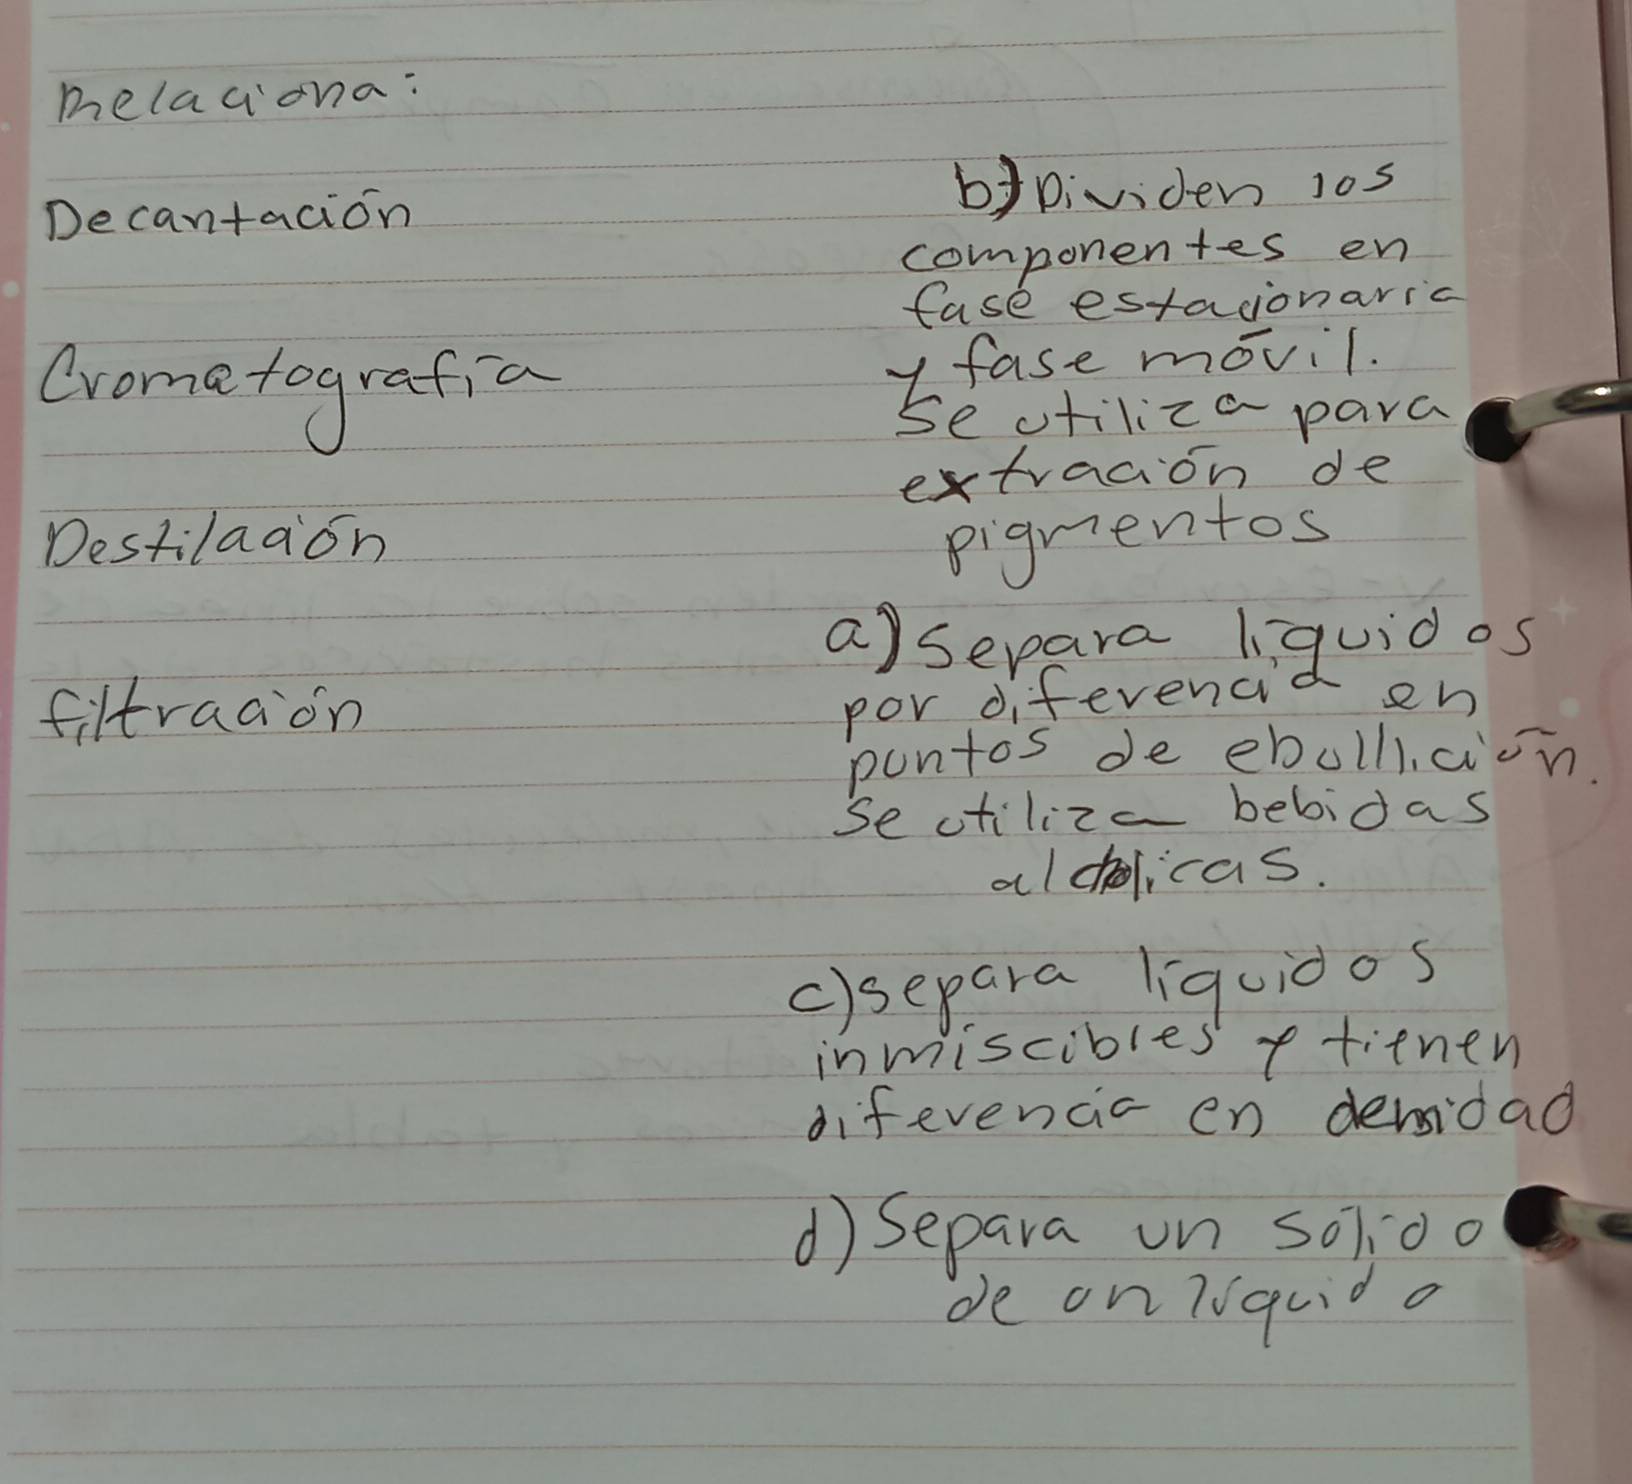 Relaciona:
Decantación
Cromatografía
Destilación
filtración
b) Dividen los
componentes en
fase estacionaria
y fase móvil.
Se utiliza para
extración de
pigmentos
a) separa líquidos
por diferencia en
puntos de ebullición.
Se utiliza bebidas
alcholicas.
c) separa líquidos
inmiscibles y tienen
diferencia en densidad
d) Separa un sólido
de un líquido